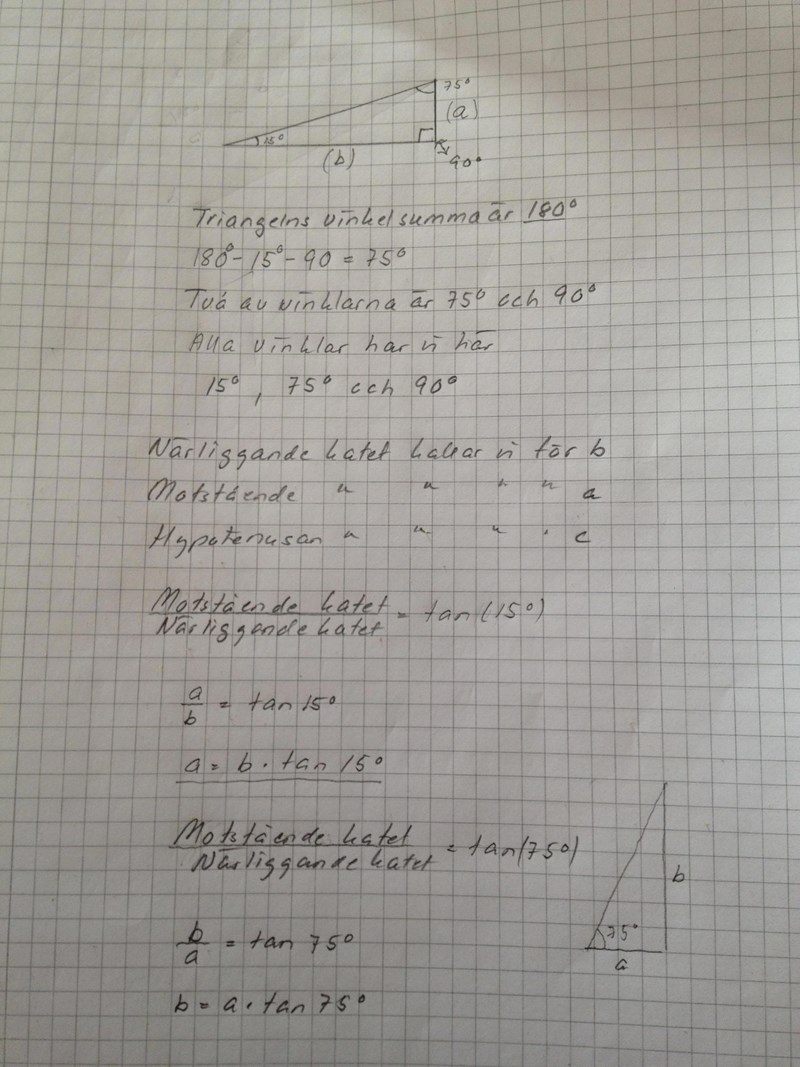 75°
(a)
15°
(b)
90°
Triangelns vinkelsumma är 180°
180° - 15° - 90 = 75°
Två av vinklarna är 75° och 90°
Alla vinklar har vi här
15° , 75° och 90°
Närliggande katet kallar vi för b
Motstående " " " " a
Hypotenusan " " " " c
Motstående katet
Närliggande katet = tan(15°)
a/b = tan 15°
a = b · tan 15°
Motstående katet
Närliggande katet = tan(75°)
b
75°
a
b/a = tan 75°
b = a · tan 75°